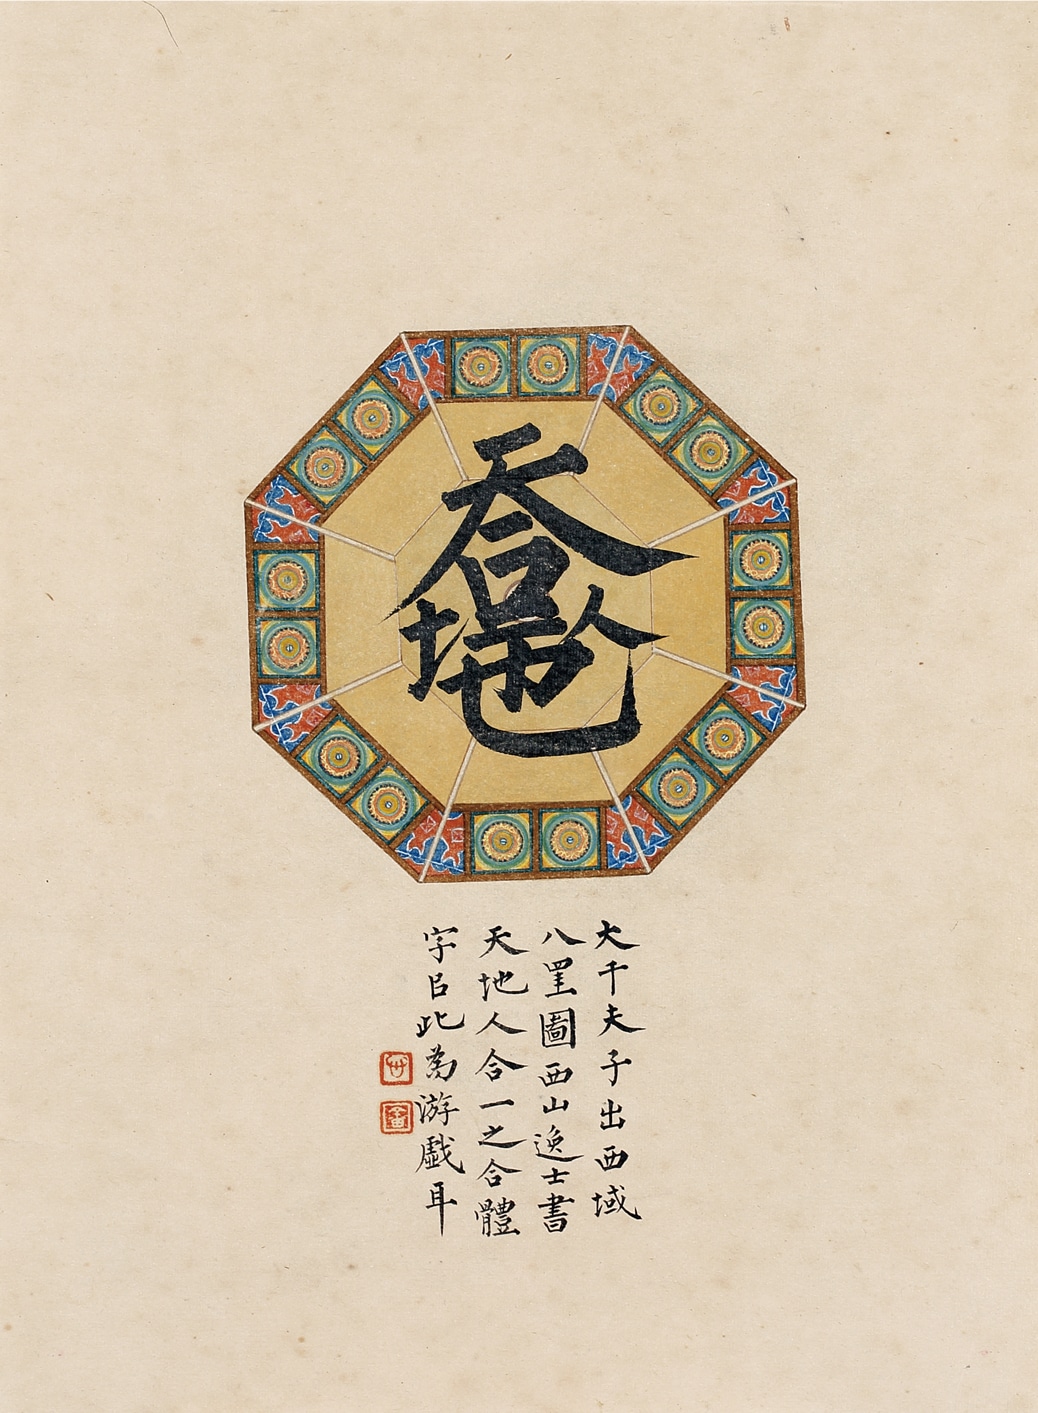 大千夫子出西域
八罣圖西山逸士書
天地人合一之合體
字㠯此為游戲耳